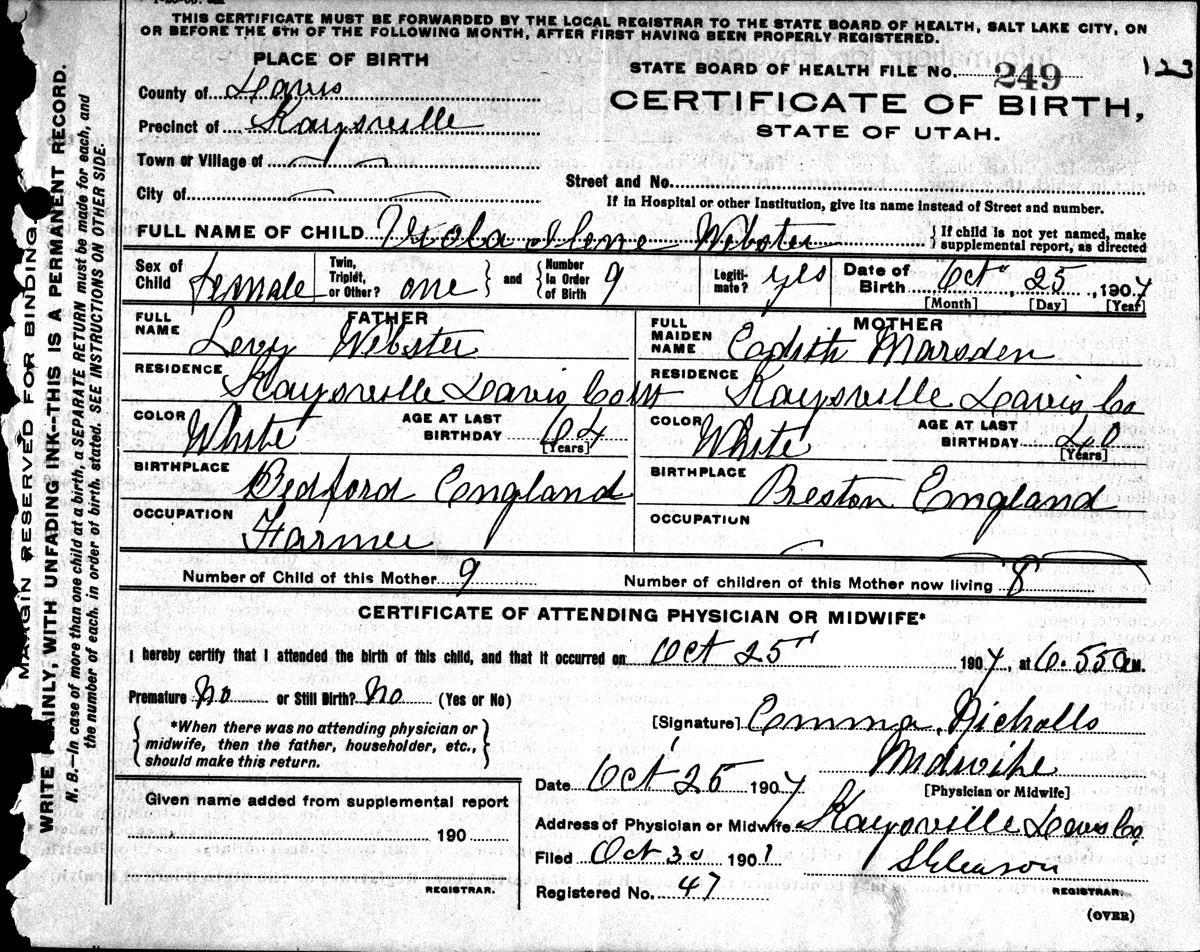 THIS CERTIFICATE MUST BE FORWARDED BY THE LOCAL REGISTRAR TO THE STATE BOARD OF HEALTH, SALT LAKE CITY, ON
OR BEFORE THE 5TH OF THE FOLLOWING MONTH, AFTER FIRST HAVING BEEN PROPERLY REGISTERED.
PLACE OF BIRTH
County of Davis
Precinct of Kaysville
Town or Village of
City of
STATE BOARD OF HEALTH FILE NO. 249
123
CERTIFICATE OF BIRTH,
STATE OF UTAH.
Street and No.
If in Hospital or other Institution, give its name instead of Street and number.
FULL NAME OF CHILD Viola Ilene Webster {If child is not yet named, make
supplemental report, as directed
Sex of Child female Twin, Triplet, or Other? one } and { Number In Order of Birth 9 Legiti-mate? yes Date of Birth Oct 25, 1907
[Month] [Day] [Year]
FATHER
FULL NAME Levy Webster
RESIDENCE Kaysville Davis Co Ut
COLOR White AGE AT LAST BIRTHDAY 64
[Years]
BIRTHPLACE Bedford England
OCCUPATION Farmer
MOTHER
FULL MAIDEN NAME Eadith Marsden
RESIDENCE Kaysville Davis Co
COLOR White AGE AT LAST BIRTHDAY 40
[Years]
BIRTHPLACE Preston England
OCCUPATION
Number of Child of this Mother 9 Number of children of this Mother now living 8
CERTIFICATE OF ATTENDING PHYSICIAN OR MIDWIFE*
I hereby certify that I attended the birth of this child, and that it occurred on Oct 25 1907, at 6.55 a M.
Premature No or Still Birth? No (Yes or No)
{ *When there was no attending physician or
midwife, then the father, householder, etc.,
should make this return. }
[Signature] Emma Nicholls
Midwife
[Physician or Midwife]
Date Oct 25 1907
Address of Physician or Midwife Kaysville Davis Co
Filed Oct 30 1907
REGISTRAR.
Registered No. 47
(OVER)
Given name added from supplemental report
190
REGISTRAR.
MARGIN RESERVED FOR BINDING.
WRITE PLAINLY, WITH UNFADING INK--THIS IS A PERMANENT RECORD.
N. B.—In case of more than one child at a birth, a SEPARATE RETURN must be made for each, and
the number of each, in order of birth, stated. SEE INSTRUCTIONS ON OTHER SIDE.